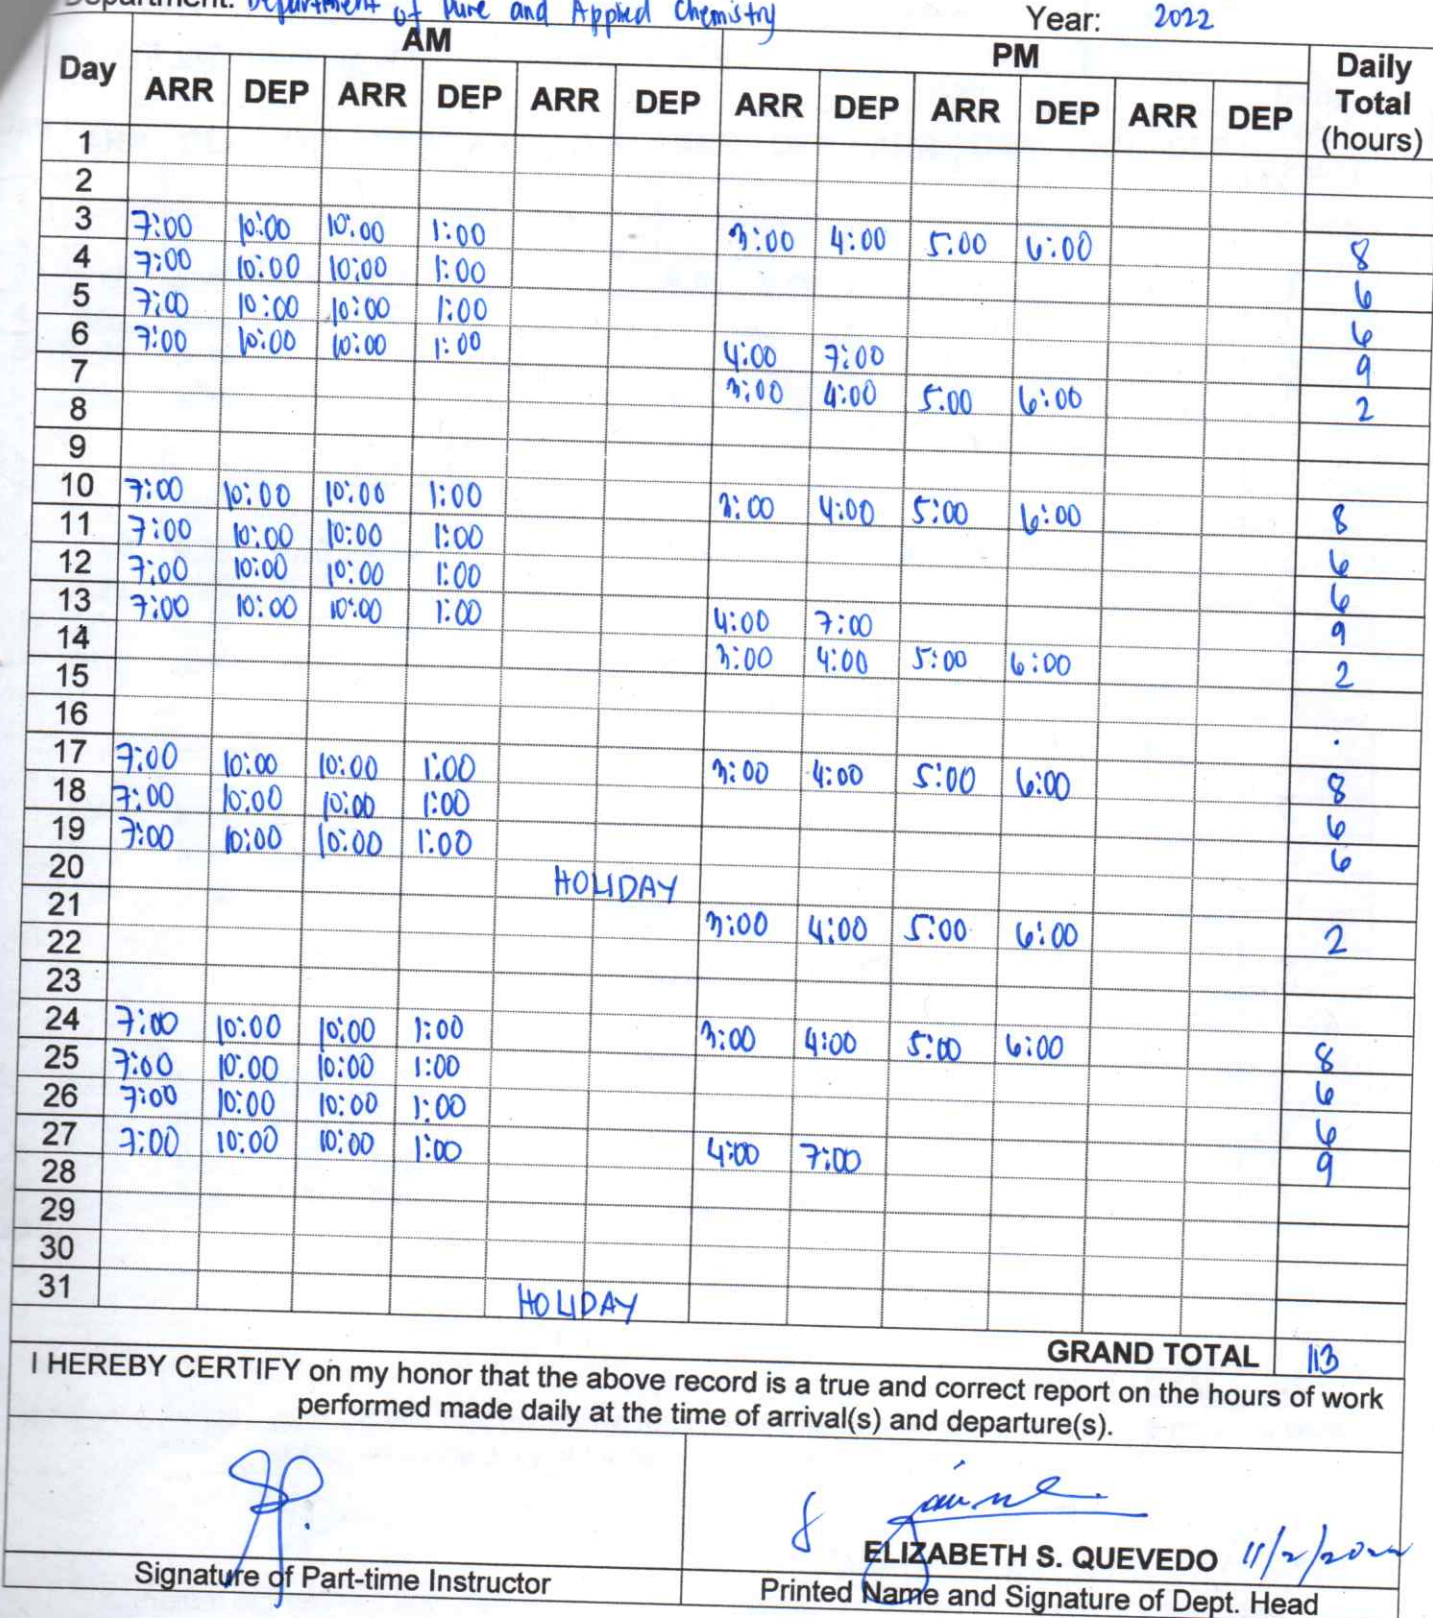 Department: Department of Pure and Applied Chemistry Year: 2022
Day AM PM Daily Total (hours)
ARR DEP ARR DEP ARR DEP ARR DEP ARR DEP ARR DEP
1
2
3 7:00 10:00 10:00 1:00 3:00 4:00 5:00 6:00 8
4 7:00 10:00 10:00 1:00 6
5 7:00 10:00 10:00 1:00 6
6 7:00 10:00 10:00 1:00 4:00 7:00 9
7 3:00 4:00 5:00 6:00 2
8
9
10 7:00 10:00 10:00 1:00 3:00 4:00 5:00 6:00 8
11 7:00 10:00 10:00 1:00 6
12 7:00 10:00 10:00 1:00 6
13 7:00 10:00 10:00 1:00 4:00 7:00 9
14 3:00 4:00 5:00 6:00 2
15
16
17 7:00 10:00 10:00 1:00 3:00 4:00 5:00 6:00 8
18 7:00 10:00 10:00 1:00 6
19 7:00 10:00 10:00 1:00 6
20 HOLIDAY
21 3:00 4:00 5:00 6:00 2
22
23
24 7:00 10:00 10:00 1:00 3:00 4:00 5:00 6:00 8
25 7:00 10:00 10:00 1:00 6
26 7:00 10:00 10:00 1:00 6
27 7:00 10:00 10:00 1:00 4:00 7:00 9
28
29
30
31 HOLIDAY
GRAND TOTAL 113
I HEREBY CERTIFY on my honor that the above record is a true and correct report on the hours of work
performed made daily at the time of arrival(s) and departure(s).
ELIZABETH S. QUEVEDO 11/2/2022
Signature of Part-time Instructor
Printed Name and Signature of Dept. Head